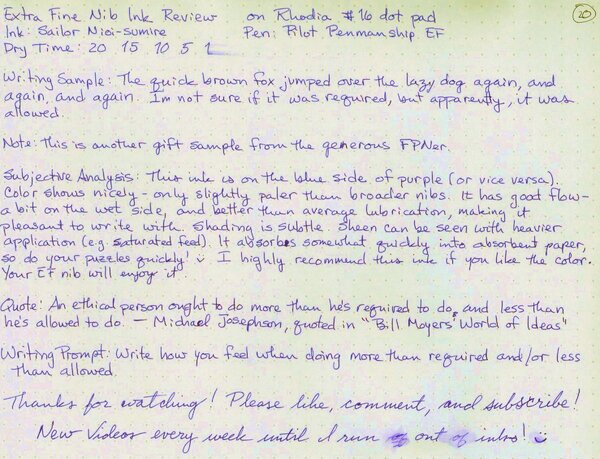 Extra Fine Nib Ink Review on Rhodia #16 dot pad 20
Ink: Sailor Nioi-sumire Pen: Pilot Penmanship EF
Dry Time: 20 15 10 5 1
Writing Sample: The quick brown fox jumped over the lazy dog again, and
again, and again. I'm not sure if it was required, but apparently, it was
allowed.
Note: This is another gift sample from the generous FPNer.
Subjective Analysis: This ink is on the blue side of purple (or vice versa).
Color shows nicely - only slightly paler than broader nibs. It has good flow-
a bit on the wet side, and better than average lubrication, making it
pleasant to write with. Shading is subtle. Sheen can be seen with heavier
application (e.g. saturated feed). It absorbs somewhat quickly into absorbent paper,
so do your puzzles quickly! I highly recommend this ink if you like the color.
Your EF nib will enjoy it.
Quote: An ethical person ought to do more than he's required to do, and less than
he's allowed to do. — Michael Josephson, quoted in "Bill Moyers' World of Ideas"
Writing Prompt: Write how you feel when doing more than required and/or less
than allowed.
Thanks for watching! Please like, comment, and subscribe!
New Videos every week until I run out of inks!